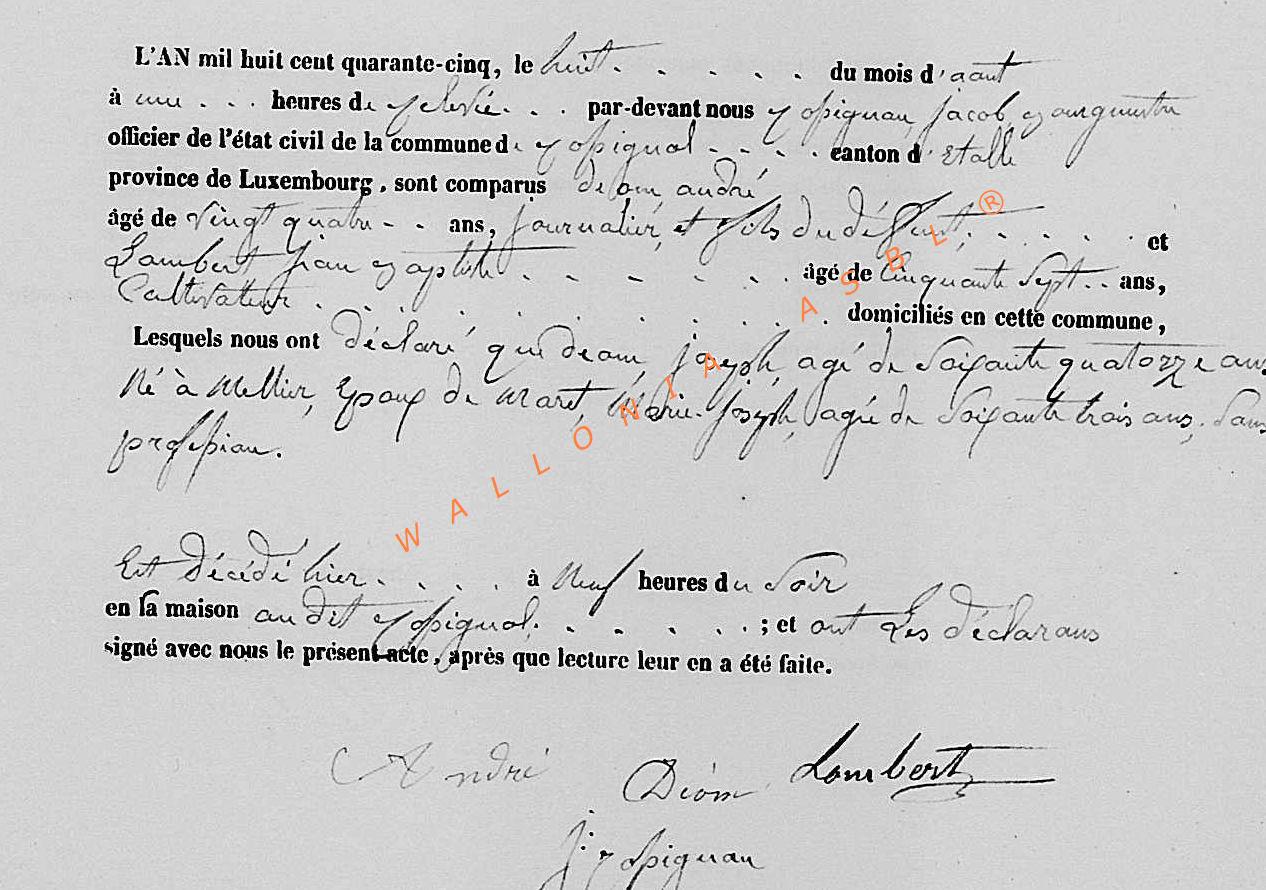 L'AN mil huit cent quarante-cinq, le huit . . . . . du mois d'aout
à une . . . heures de relevée . . . par-devant nous Rossignon Jacob, Bourgmestre
officier de l'état civil de la commune de Rossignol . . . . canton d'Etalle
province de Luxembourg, sont comparus déom, andré
âgé de vingt quatre . . ans, journalier, et fils du défunt, . . . . . et
Lambert jean Baptiste . . . . . . âgé de cinquante sept . . ans,
Cultivateur . . . . . . . . . . domiciliés en cette commune,
Lesquels nous ont déclaré que deom, joseph, agé de soixante quatorze ans
Né à Mellier, Epoux de Maret, Marie-joseph, agée de soixante trois ans, sans
profession.
Est décédé hier . . . . à Neuf heures du soir
en la maison au dit Rossignol. . . . . . ; et ont les déclarans
signé avec nous le présent acte, après que lecture leur en a été faite.
André Déom Lambert
J. Rossignon
WALLONIA ASBL ®